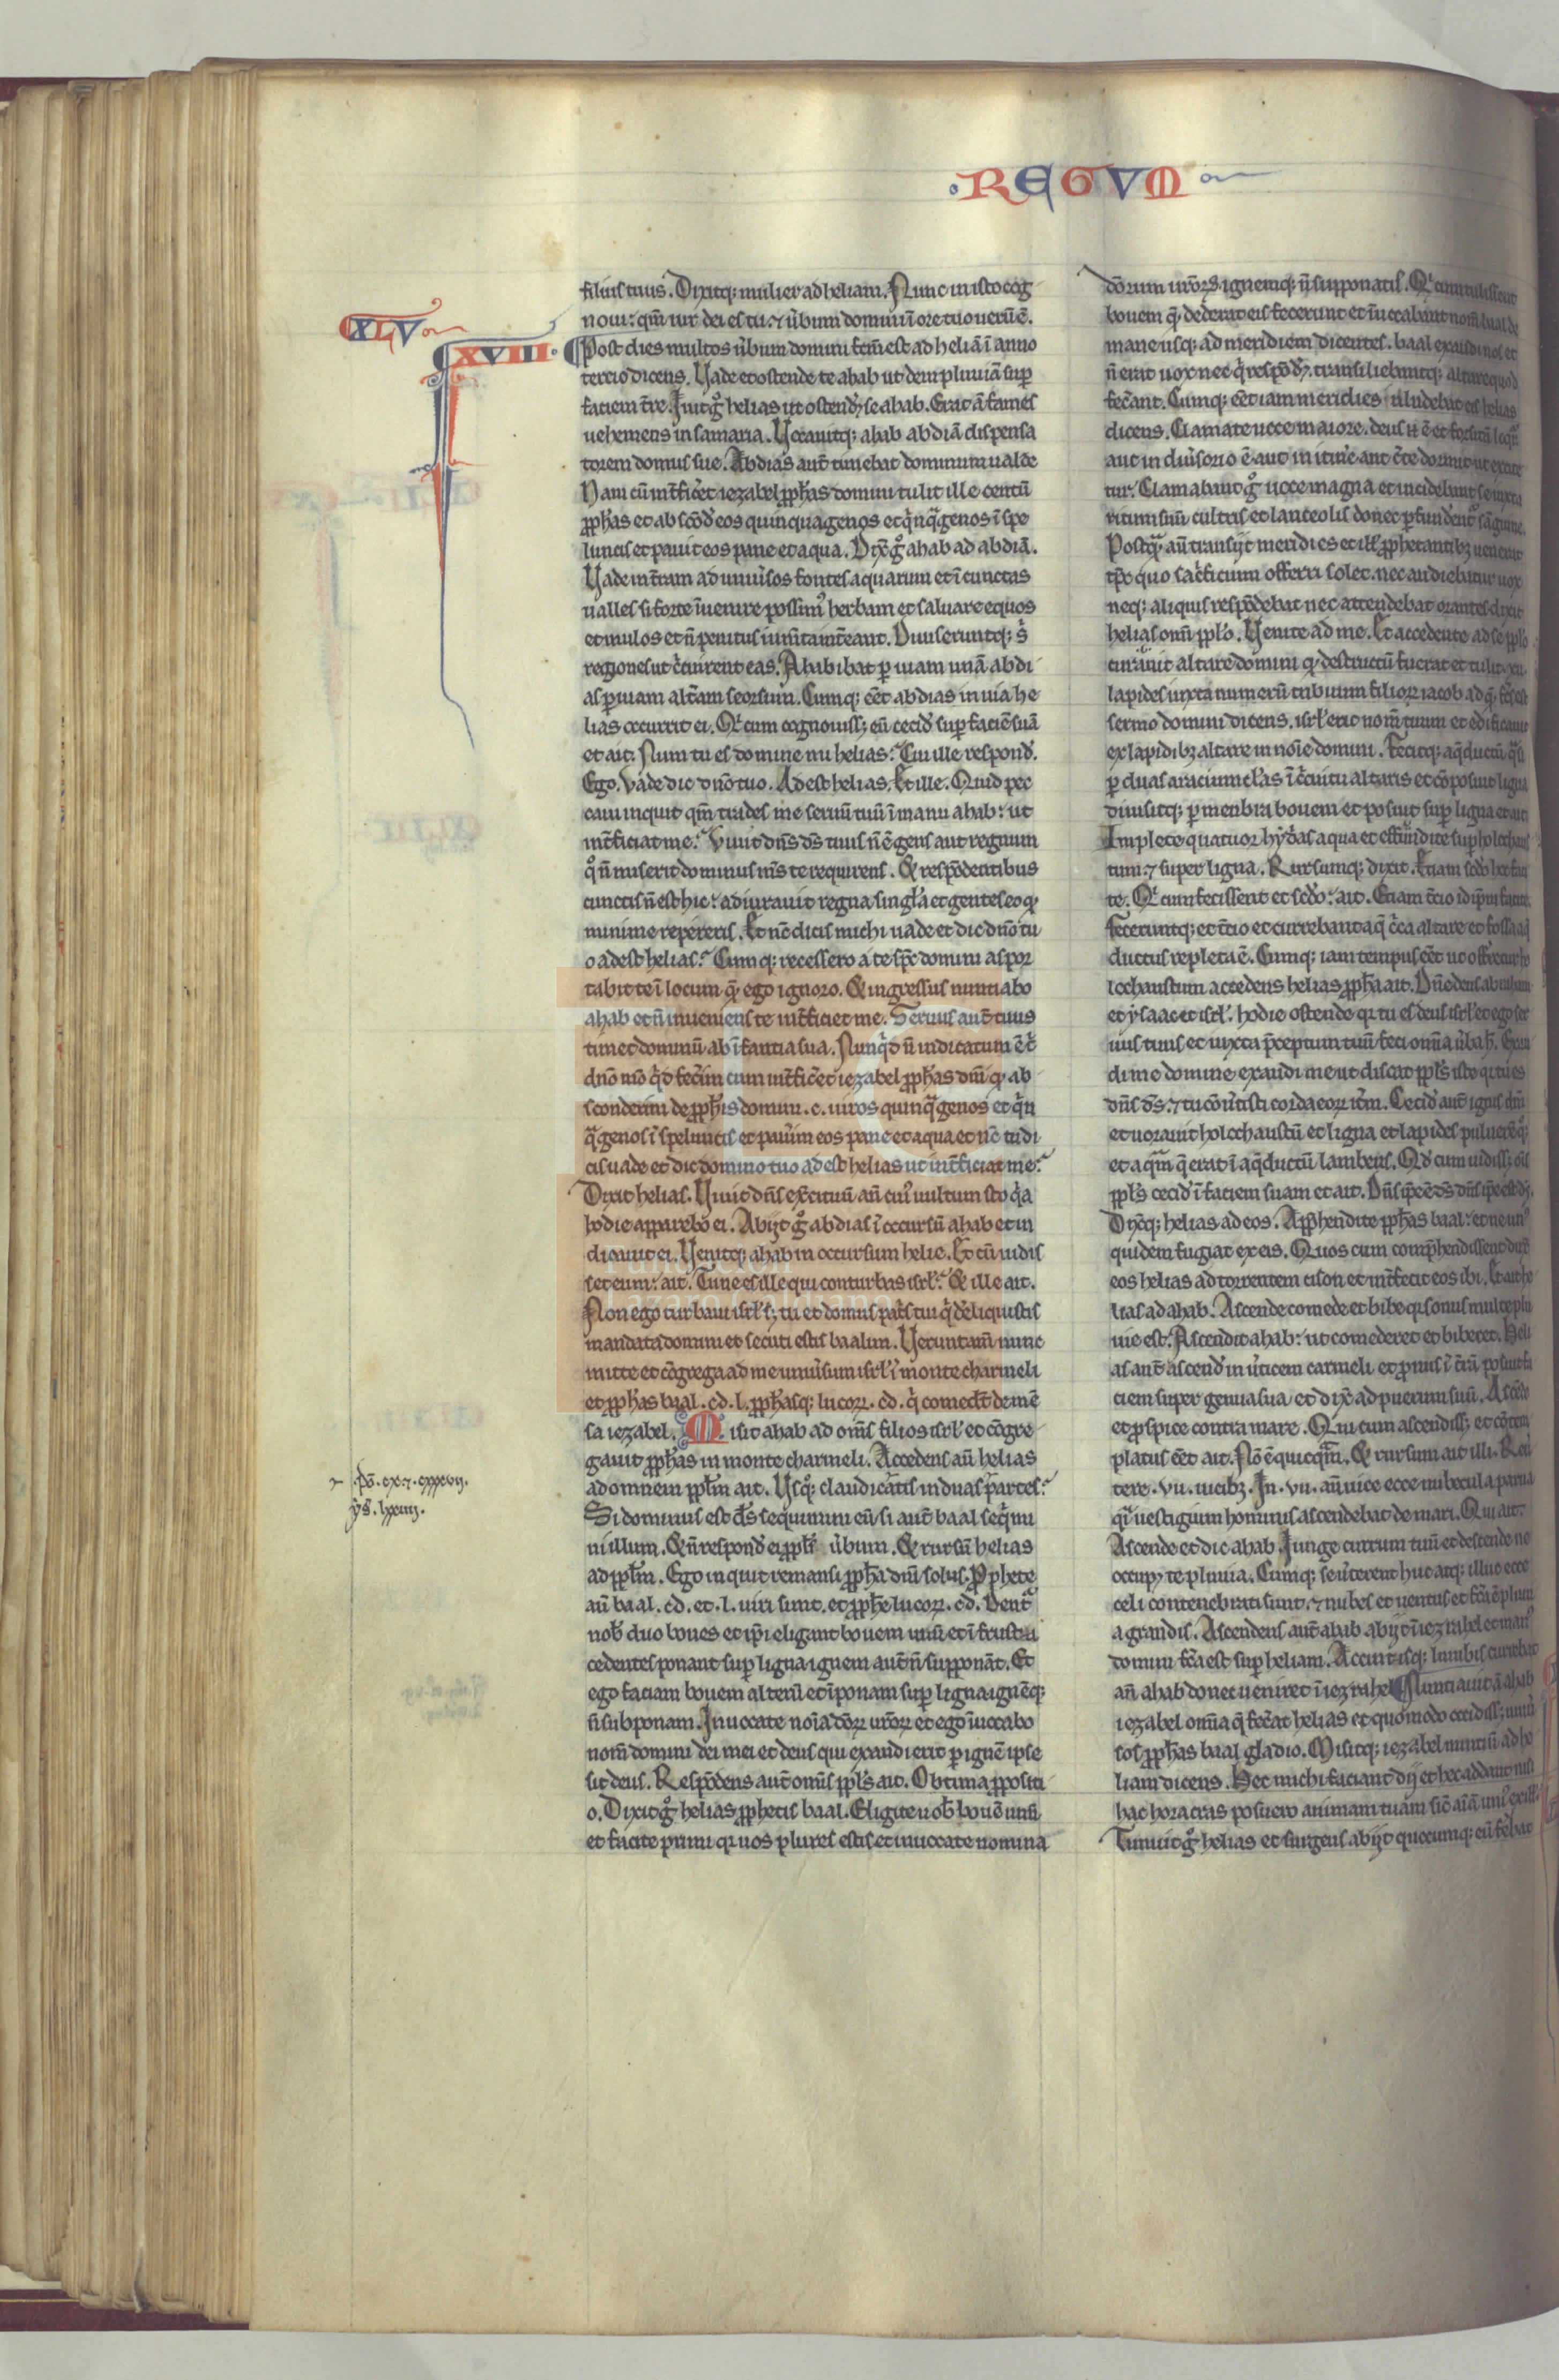 . REGVM
XLV
XVIII.
filius tuus. Dixitq; mulier ad heliam. Nunc in isto cog
noui: qm̄ uir dei es tu. ⁊ ūbum domini ī ore tuo uerū ē.
Post dies multos ūbum domini fcm̄ est ad heliā ī anno
tercio dicens. Uade et ostende te ahab ut dem pluuiā sup̄
faciem tr̄e. Iuit gͦ helias ut ostend̄ȝ se ahab. Erat ā fames
uehemens in samaria. Uocauitq; ahab abdiā dispensa
torem domus sue. Abdias aut̄ timebat dominum ualde
Nam cū int̄fic̄et iezabel ꝓph̄as domini tulit ille centū
ꝓph̄as et abscōd̄ eos quinquagenos et qͥnqͣgenos ī spe
luncis et pauit eos pane et aqua. Dix̄ gͦ ahab ad abdiā.
Uade in t̄ram ad uniūsos fontes aquarum et ī cunctas
ualles si forte īuenire possimꝰ herbam et saluare equos
et mulos et n̄ penitus ium̄ta int̄eant. Diuiseruntq; sͥ
regiones ut cͥcuirent eas. Ahab ibat ꝑ uiam unā abdi
as ꝑ uiam alt̄am seorsum. Cumq; eēt abdias in uia he
lias occurrit ei. Qͥ cum cognouissȝ eū cecid̄ sup̄ faciē suā
et ait. Num tu es domine mi helias? Cui ille respond̄.
Ego. vade dic dn̄o tuo. Adest helias. Et ille. Quid pec
caui inquit qm̄ trades me seruū tuū ī manu ahab: ut
int̄ficiat me? Viuit dn̄s ds̄ tuus n̄ ē gens aut regnum
qͦ n̄ miserit dominus ms̄ te requirens. Et respōdentibus
cunctis n̄ est hic: adiurauit regna singl̄a et gentes eo qͥ
minime repereris. Et nc̄ dicis michi uade et dic dn̄o tu
o adest helias? Cumq; recessero a te spc̄ domini aspor
tabit te ī locum qͥ ego ignoro. Et ingressus nuntiabo
ahab et n̄ inueniens te int̄ficiet me. Seruus aut̄ tuus
timet dominū ab īfantia sua. Nunqͥd n̄ indicatum ē t̄
dn̄o mō qͥd fec̄im cum int̄fic̄et iezabel ꝓph̄as dn̄i qͥ ab
sconderim de ꝓph̄is domini .c. uiros quinqͣgenos et qͥn
qͣgenos ī speluncis et pauīm eos pane et aqua et nc̄ tu di
cis uade et dic domino tuo adest helias ut int̄ficiat me?
Dixit helias. Uiuit dn̄s ex̄cituū an̄ cuiꝰ uultum sto qͥa
hodie apparebo ei. Abijt gͦ abdias ī occursū ahab et in
dicauit ei. Uenitq; ahab in occursum helie. Et cū uidis
set eum: ait. Tune es ille qui conturbas isrl̄? Et ille ait.
Non ego turbaui isrl̄ sȝ tu et domus pat̄s tui qͥ d̄eliquistis
mandata domini et secuti estis baalim. Ueruntam̄ nunc
mitte et cōgrega ad me uniūsum isrl̄ ī monte charmeli
et ꝓph̄as baal .cd.l. ꝓph̄asq; lucoꝝ .cd. qͥ comed̄t de mē
sa iezabel. Misit ahab ad om̄s filios isrl̄ et cōgre
gauit ꝓph̄as in monte charmeli. Accedens aū helias
ad omnem ppl̄m ait. Usqͦ; claudicatis in duas partes?
Si dominus est ds̄ sequimini eū si aut̄ baal seqͥmi
ni illum. Et n̄ respond̄ ei ppl̄s ūbum. Et rursū helias
ad ppl̄m. Ego inquit remansi ꝓph̄a dn̄i solus. Prophete
aū baal .cd. et .l. uiri sunt. et ꝓph̄e lucoꝝ .cd. Dentͬ
nob̄ duo boues et ip̄i eligant bouem unū et ī frusta
cedentes ponant sup̄ ligna ignem aut̄ n̄ supponāt. Et
ego faciam bouem alterū et īponam sup̄ ligna ignēq;
n̄ subponam. Inuocate noīa dōꝝ ur̄oꝝ et ego īuocabo
nom̄ domini dei mei et deus qui exaudierit ꝑ ignē ipse
sit deus. Respōdens aut̄ omīs ppl̄s ait. Obtima ꝓpositi
o. Dixit gͦ helias ꝓphetis baal. Eligite uob̄ bouē unū
et facite primi qͥ uos plures estis et inuocate nomina
pō. cx. ⁊ cxxxvij.
ys̄. lxiiij.
dōrum ur̄oꝝ ignemq; n̄ supponatis. Qͥ cum tulissent
bouem qͥ dederat eis fecerunt et īuocabant nom̄ baal de
mane usq; ad meridiem dicentes. baal exaudi nos et
n̄ erat uox nec qͥ respōd̄ȝ. transiliebantq; altare quod
fec̄ant. Cumq; eēt iam meridies illudebat eis helias
dicens. Clamate uoce maiore. deus n̄ ē et forsitan loqͥtͬ
aut in diūsorio ē aut in itinē aut c̄te dormit ut excite
tur. Clamabant gͦ uoce magna et incidebant se iuxta
ritum suū cultris et lanceolis donec ꝑfunderentͬ sāguine.
Postqͣ aū transijt meridies et ill̄ ꝓphetantibȝ uenerat
tp̄s quo sac̄ficium offerri solet. nec audiebatur uox
neq; aliquis respōdebat nec attendebat orantes dixit
helias omī ppl̄o. Uenite ad me. Et accedente ad se ppl̄o
curauit altare domini qͥ destructū fuerat et tulit .xii.
lapides iuxta numerū tribuum filioꝝ iacob ad qͥ fcūs est
sermo domini dicens. isrl̄ erit nom̄ tuum et edificauit
ex lapidibȝ altare in noīe domini. Fecitq; aq̄ductū qͣsi
ꝑ duas aratiunclas ī cͥcuitu altaris et cōposuit ligna
diuisitq; ꝑ menbra bouem et posuit sup̄ ligna et ait
Implete quatuor hydͥas aqua et effundite sup̄ holochaus
tum. ⁊ super ligna. Rursumq; dixit. Etiam scd̄o hoc faci
te. Qͥ cum fecissent et scd̄o: ait. Etiam t̄cio idip̄m facite.
Feceruntq; et t̄cio et currebant aq̄ cͥca altare et fossa aq̄
ductus repleta ē. Cumq; iam tempus eēt ut offerretur ho
lochaustum accedens helias ꝓph̄a ait. Dn̄e deus abraham
et ysaac et isrl̄. hodie ostende qͥ tu es deus isrl̄ et ego ser
uus tuus et iuxta p̄ceptum tuū feci omīa ūba h̄. Exau
di me domine exaudi me ut discat ppl̄s iste qͥ tu es
dn̄s ds̄. ⁊ tu cōūtisti corda eoꝝ itm̄. Cecid̄ aut̄ ignis dn̄i
et uorauit holochaustū et ligna et lapides pulueręq;
et aqͣm q̄ erat ī aq̄ductū lambens. Qd̄ cum uidissȝ om̄s
ppl̄s cecid̄ ī faciem suam et ait. Dn̄s ip̄e ē ds̄ dn̄s ip̄e est ds̄.
Dix̄q; helias ad eos. App̄hendite ꝓph̄as baal: et ne unꝰ
quidem fugiat ex eis. Quos cum comp̄hendissent dux̄
eos helias ad torrentem cison et int̄fecit eos ibi. Et ait he
lias ad ahab. Ascende comede et bibe qͥ sonus multe plu
uie est. Ascendit ahab: ut comederet et biberet. Heli
as aut̄ ascend̄ in ūticem carmeli et pronus ī t̄rā posuit fa
ciem super genua sua et dix̄ ad puerum suū. Ascēde
et ꝓspice contra mare. Qui cum ascendissȝ et cōtem
platus eēt ait. Nō ē quicqͣm. Et rursum ait illi. Reū
tere .vii. uicibȝ. In .vii. aū uice ecce nubecula parua
qͣi uestigium hominis ascendebat de mari. Qui ait.
Ascende et dic ahab. Iunge currum tuū et descende ne
occupȝ te pluuia. Cumq; se ūterent huc atq; illuc ecce
celi contenebrati sunt. ⁊ nubes et uentus et fcā ē pluui
a grandis. Ascendens aut̄ ahab abijt ī iezrahel et manꝰ
domini fcā est sup̄ heliam. Accinctisq; lumbis currebat
an̄ ahab donec ueniret ī iezrahel. Nuntiauit ā ahab
iezabel omīa q̄ fec̄at helias et quomodo occidissȝ uniū
sos ꝓph̄as baal gladio. Misitq; iezabel nuntiū ad he
liam dicens. Hec michi faciant dij et hec addant nisi
hac hora cras posuero animam tuam sic̄ aīā uniꝰ ex ill̄
Timuit gͦ helias et surgens abijt quocumq; eū fēbat